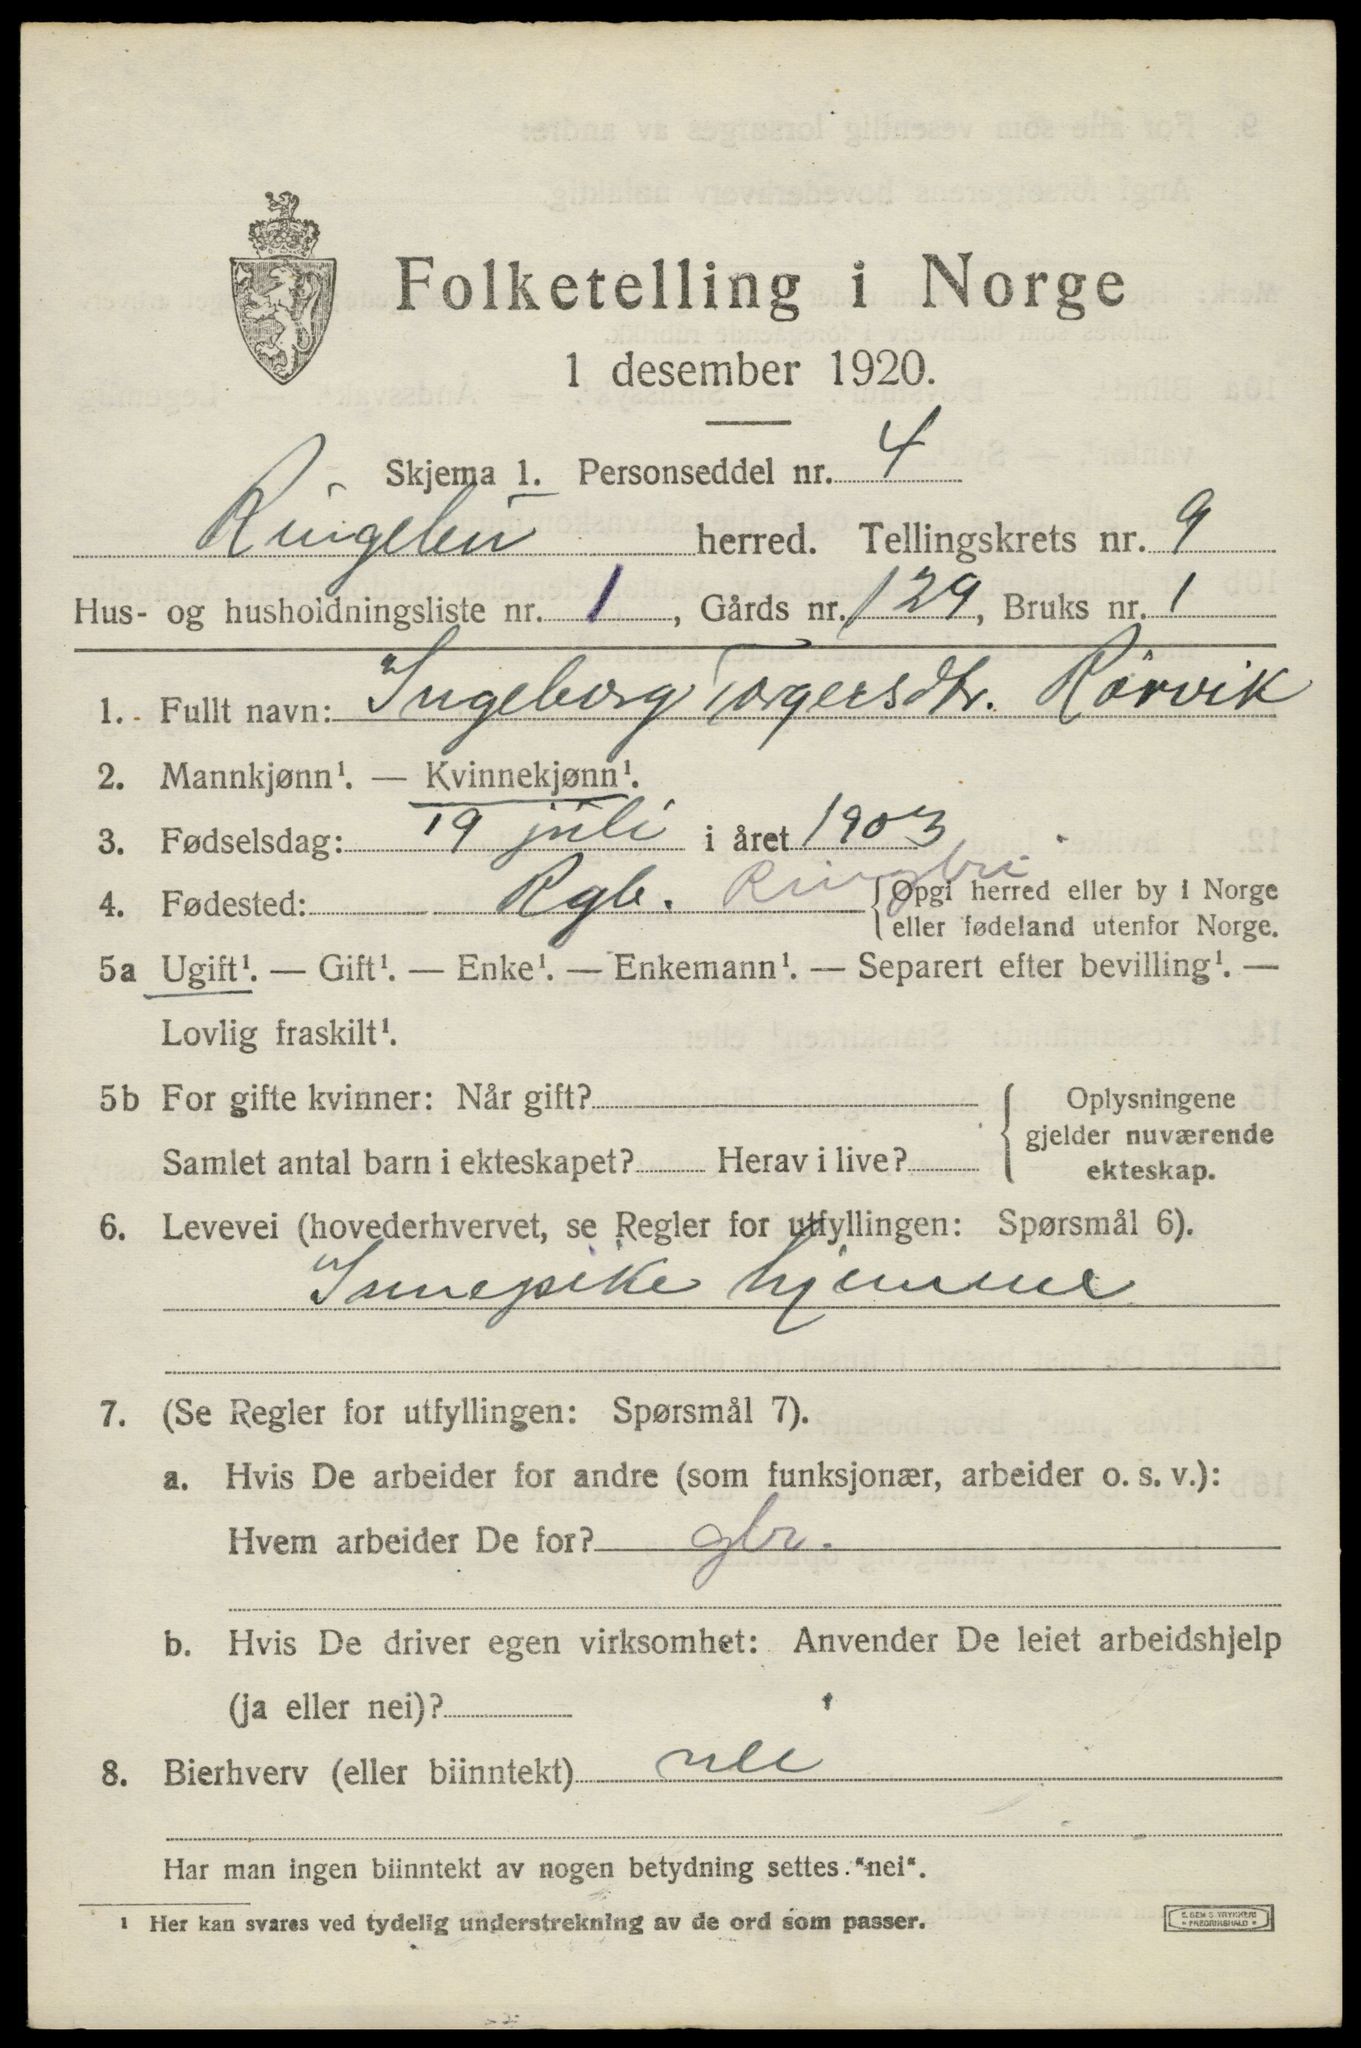 Folketelling i Norge
1 desember 1920.
Skjema 1. Personseddel nr. 4
Ringebu herred. Tellingskrets nr. 9
Hus- og husholdningsliste nr. 1, Gårds nr. 129, Bruks nr. 1
1. Fullt navn: Ingeborg Torgersdtr. Rørvik
2. Mannkjønn¹. — Kvinnekjønn¹.
3. Fødselsdag: 19 juli i året 1903
4. Fødested: Rgb. Ringebu {Opgi herred eller by i Norge
eller fødeland utenfor Norge.
5a Ugift¹. — Gift¹. — Enke¹. — Enkemann¹. — Separert efter bevilling¹. —
Lovlig fraskilt¹.
5b For gifte kvinner: Når gift? { Oplysningene
gjelder nuværende
Samlet antal barn i ekteskapet? Herav i live? ekteskap.
6. Levevei (hovederhvervet, se Regler for utfyllingen: Spørsmål 6).
Innepike hjemme
7. (Se Regler for utfyllingen: Spørsmål 7).
a. Hvis De arbeider for andre (som funksjonær, arbeider o. s. v.):
Hvem arbeider De for? gbr.
b. Hvis De driver egen virksomhet: Anvender De leiet arbeidshjelp
(ja eller nei)?
8. Bierhverv (eller biinntekt) nei
Har man ingen biinntekt av nogen betydning settes "nei".
¹ Her kan svares ved tydelig understrekning av de ord som passer.